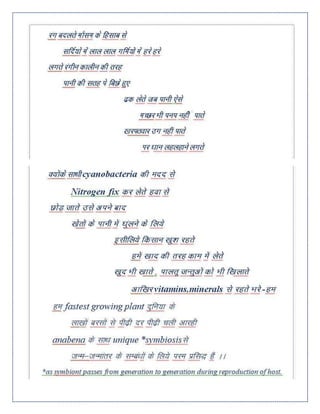 रंग बदलते मौसम के हिसाब से
सर्दियों में लाल लाल गर्मियों में हरे हरे
लगते रंगीन कालीन की तरह
पानी की सतह पे बिछे हुए
ढक लेते जब पानी ऐसे
मच्छर भी पनप नहीं पाते
खरपतवार उग नहीं पाते
पर धान लहलहाने लगते
क्योंके साथी cyanobacteria की मदद से
Nitrogen fix कर लेते हवा से
छोड़ जाते उसे अपने बाद
खेतों के पानी में घुलने के लिये
इसीलिये किसान खुश रहते
हमे खाद की तरह काम में लेते
खुद भी खाते, पालतू जन्तुओ को भी खिलाते
आखिर vitamins,minerals से रहते भरे -हम
हम fastest growing plant दुनिया के
लाखों बरसो से पीढ़ी दर पीढ़ी चली आरही
anabena के साथ unique *symbiosis से
जन्म-जन्मांतर के सम्बंधों के लिये परम प्रसिद्ध हैं ।।
*as symbiont passes from generation to generation during reproduction of host.